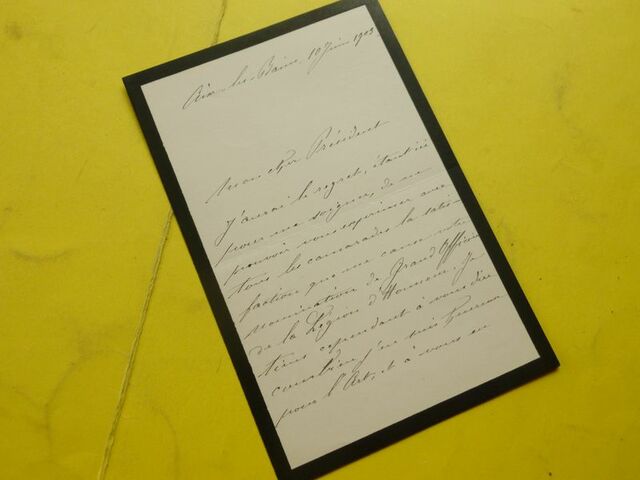 Aix-les-Bains, 10 Juin 1903
Mon cher Président
J'aurai le regret, étant ici
pour me soigner, de ne
pouvoir vous exprimer avec
tous les camarades la satis-
faction que nous cause votre
nomination de Grand Officier
de la Légion d'Honneur. Je
tiens cependant à vous dire
combien j'en suis heureux
pour l'Art, et à vous en